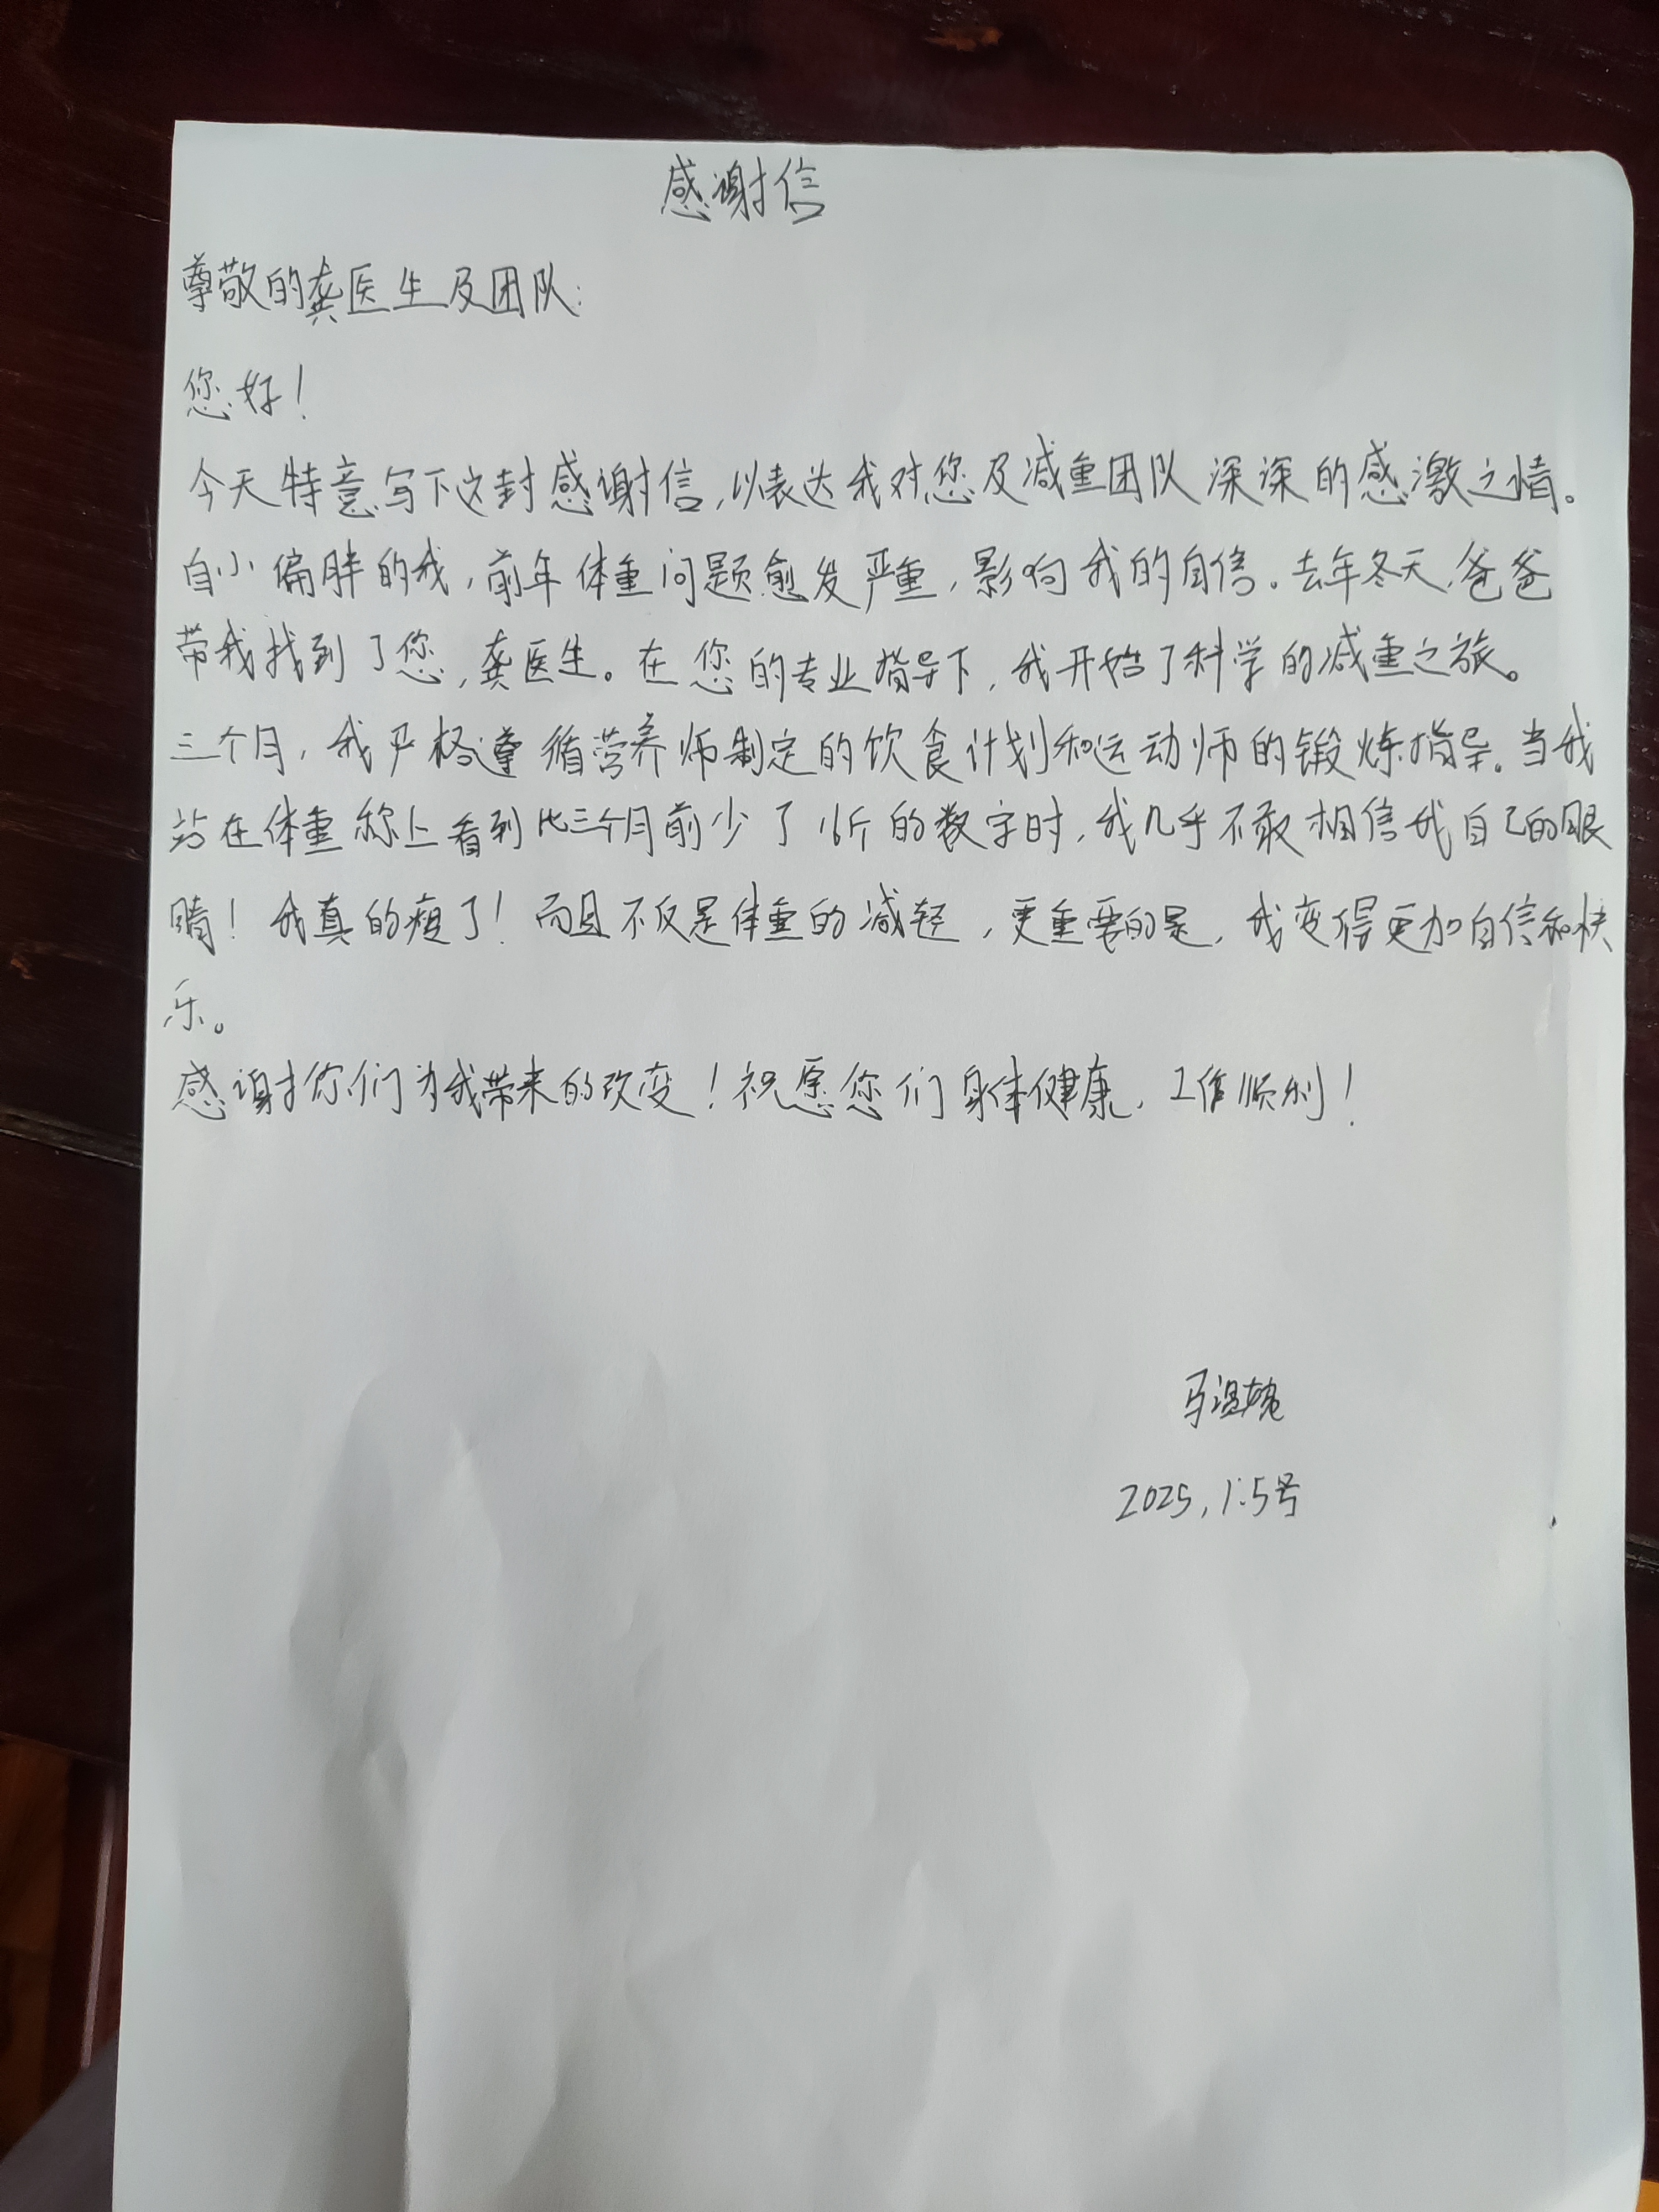 感谢信
尊敬的龚医生及团队:
您好!
今天特意写下这封感谢信,以表达我对您及减重团队深深的感激之情。
自小偏胖的我,前年体重问题愈发严重,影响我的自信。去年冬天,爸爸
带我找到了您,龚医生。在您的专业指导下,我开始了科学的减重之旅。
三个月,我严格遵循营养师制定的饮食计划和运动师的锻炼指导。当我
站在体重称上看到比三个月前少了16斤的数字时,我几乎不敢相信我自己的眼
睛!我真的瘦了!而且不仅是体重的减轻,更重要的是,我变得更加自信和快
乐。
感谢你们为我带来的改变!祝愿您们身体健康,工作顺利!
马温婉
2025,1.5号